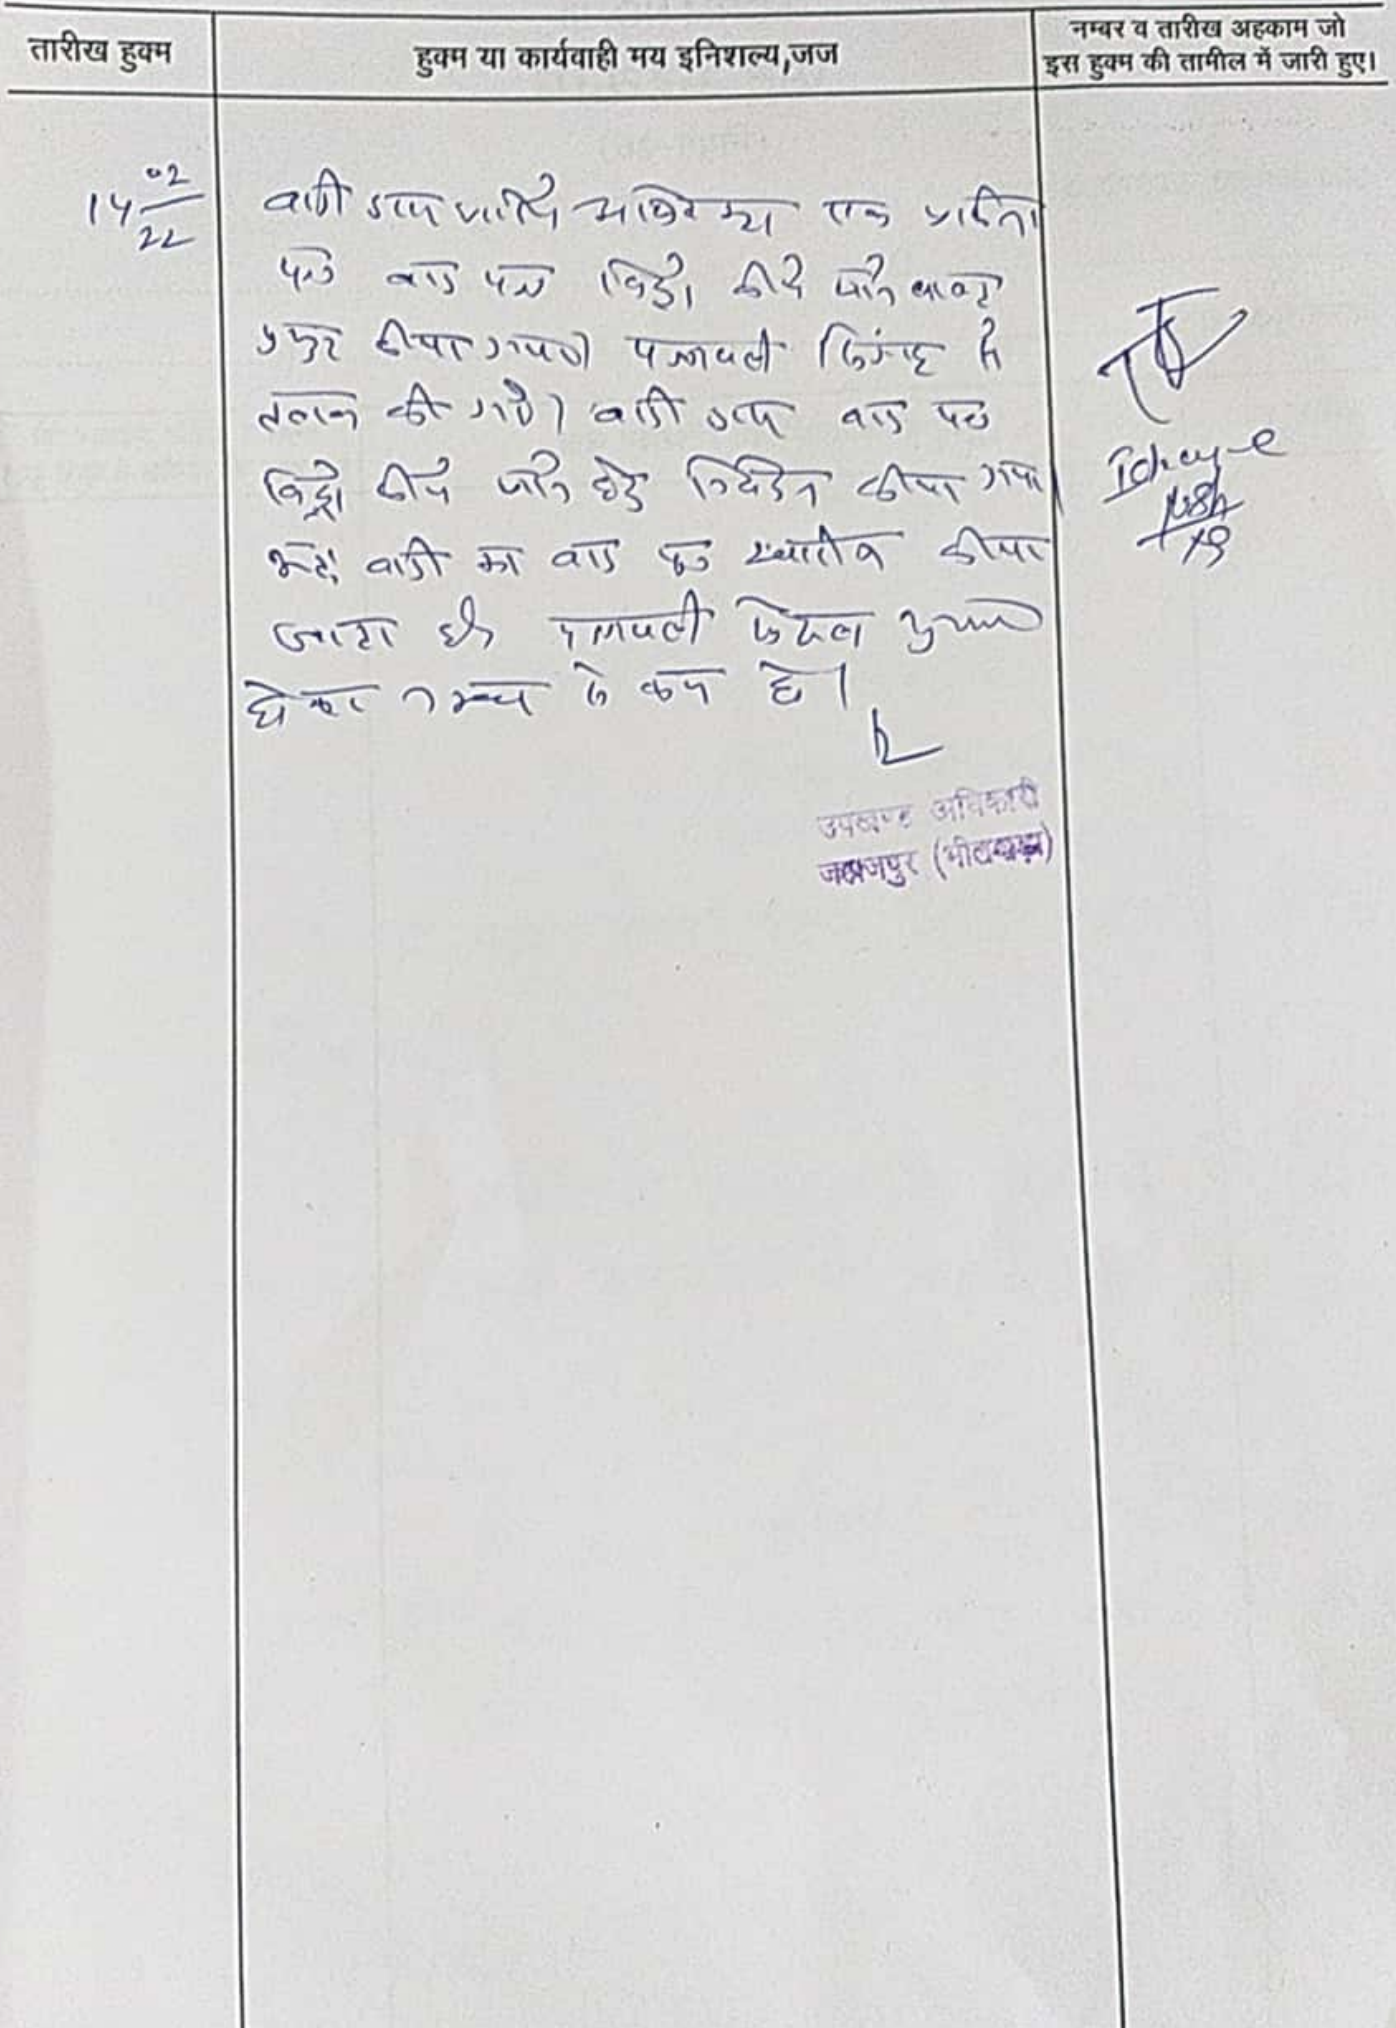 तारीख हुक्म
हुक्म या कार्यवाही मय इनिशल्य,जज
नम्बर व तारीख अहकाम जो
इस हुक्म की तामील में जारी हुए।
14 02/22
वादी एक
पत्र वाद पत्र विड्रो कीये जाने
कीया गया पत्रावली में
तलब की गई। वादी द्वारा वाद पत्र
विड्रो कीये जाने हेतु निवेदन कीया गया
अतः वादी का वाद पत्र खारीज कीया
जाता है पत्रावली फैसल शुमार
होकर नम्बर से कम हो।
उपखण्ड अधिकारी
जहाजपुर (भीलवाड़ा)